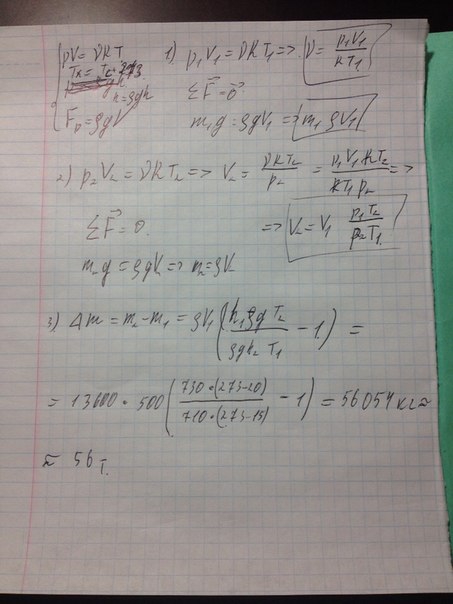 pV = νRT
1) p₁V₁ = νRT₁ => ν = p₁V₁ / RT₁
Tк = Tс + 273
p = ρgh
ΣF⃗ = 0⃗
F_A = ρgV
m₁g = ρgV₁ => m₁ = ρV₁
2) p₂V₂ = νRT₂ => V₂ = νRT₂ / p₂ = p₁V₁RT₂ / RT₁p₂ =>
ΣF⃗ = 0
=> V₂ = V₁ p₁T₂ / p₂T₁
m₂g = ρgV₂ => m₂ = ρV₂
3) Δm = m₂ - m₁ = ρV₁ (h₁ρg T₂ / ρgh₂ T₁ - 1) =
= 13600 · 500 (730·(273-20) / 710·(273-15) - 1) = 56054 кг ≈
≈ 56 т.